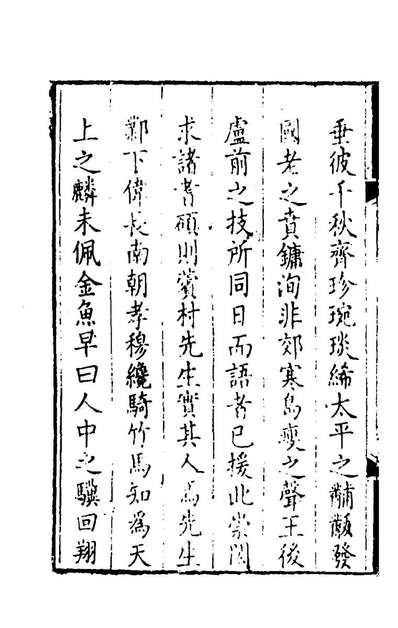 垂彼千秋齊珍琬琰絺太平之黼黻發
國老之賁鏞洵非郊寒島瘦之聲王後
盧前之技所同日而語者已援此崇閎
求諸耆碩則蘉村先生實其人焉先生
鄴下偉長南朝孝穆纔騎竹馬知為天
上之麟未佩金魚早曰人中之驥回翔